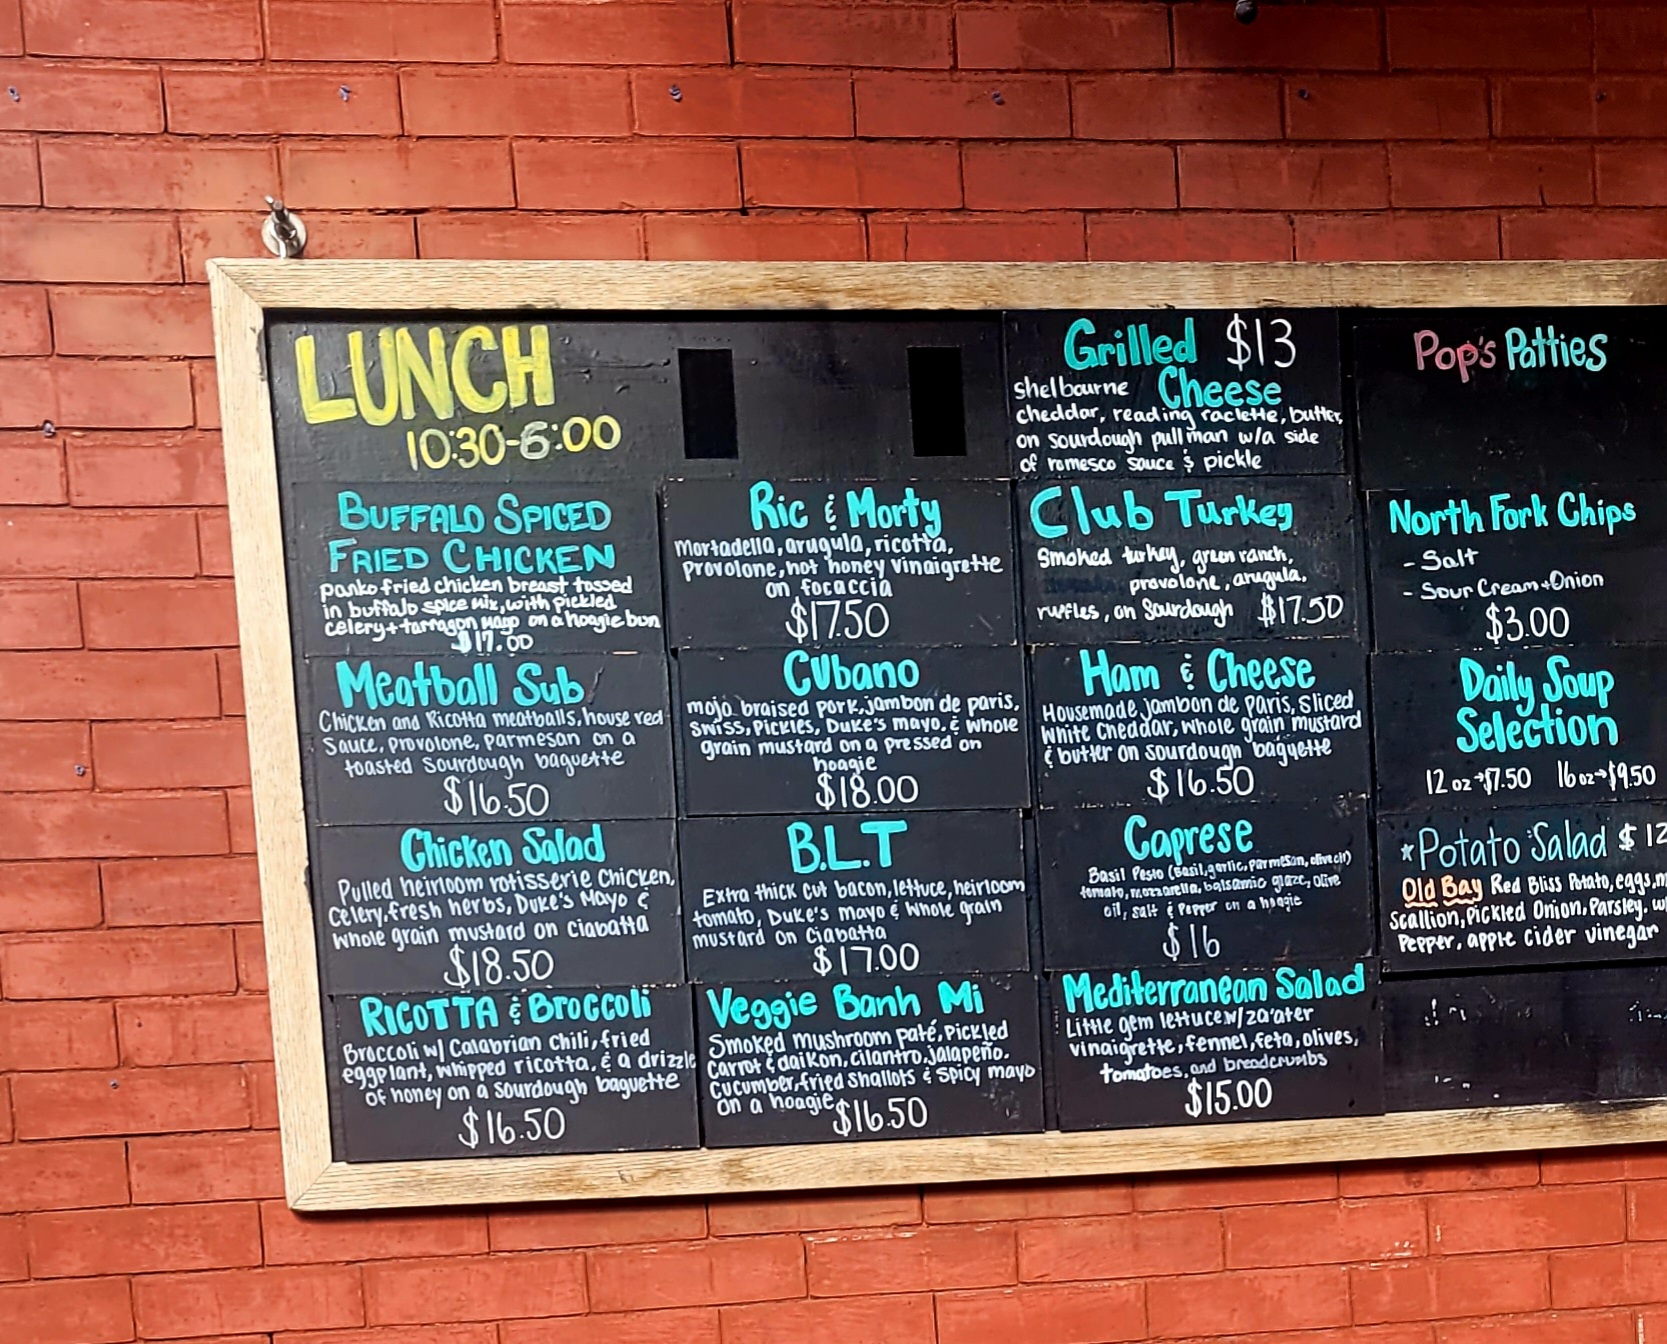 LUNCH
10:30-6:00
BUFFALO SPICED
FRIED CHICKEN
panko fried chicken breast tossed
in buffalo spice mix, with pickled
celery + tarragon mayo on a hoagie bun
$17.00
Meatball Sub
Chicken and Ricotta meatballs, house red
Sauce, provolone, parmesan on a
toasted Sourdough baguette
$16.50
Chicken Salad
Pulled heirloom rotisserie Chicken,
Celery, fresh herbs, Duke's Mayo &
Whole grain mustard on Ciabatta
$18.50
RICOTTA & BROCCOLI
Broccoli w/ Calabrian chili, fried
eggplant, whipped ricotta, & a drizzle
of honey on a sourdough baguette
$16.50
Ric & Morty
Mortadella, arugula, ricotta,
Provolone, hot honey vinaigrette
on focaccia
$17.50
CUbano
mojo braised pork, jambon de paris,
Swiss, Pickles, Duke's mayo, & whole
grain mustard on a pressed on
hoagie
$18.00
B.L.T
Extra thick cut bacon, lettuce, heirloom
tomato, Duke's mayo & Whole grain
mustard on Ciabatta
$17.00
Veggie Banh Mi
Smoked mushroom paté, Pickled
Carrot & daikon, cilantro, jalapeño,
Cucumber, fried Shallots & Spicy mayo
on a hoagie $16.50
Grilled $13
Shelbourne Cheese
cheddar, reading raclette, butter,
on sourdough pullman w/a side
of romesco sauce & pickle
Club Turkey
Smoked turkey, green ranch,
provolone, arugula,
ruffles, on Sourdough $17.50
Ham & Cheese
Housemade jambon de Paris, Sliced
White Cheddar, whole grain mustard
& butter on sourdough baguette
$16.50
Caprese
Basil Pesto (Basil, garlic, Parmesan, olive oil)
tomato, mozzarella, balsamic glaze, olive
oil, Salt & Pepper on a hoagie
$16
Mediterranean Salad
Little gem lettuce w/ za'ater
vinaigrette, fennel, feta, olives,
tomatoes, and breadcrumbs
$15.00
Pop's Patties
North Fork Chips
- Salt
- Sour Cream + Onion
$3.00
Daily Soup
Selection
12 oz → $7.50 16 oz → $9.50
*Potato Salad $12
Old Bay Red Bliss Potato, eggs,
Scallion, Pickled Onion, Parsley.
Pepper, apple Cider vinegar